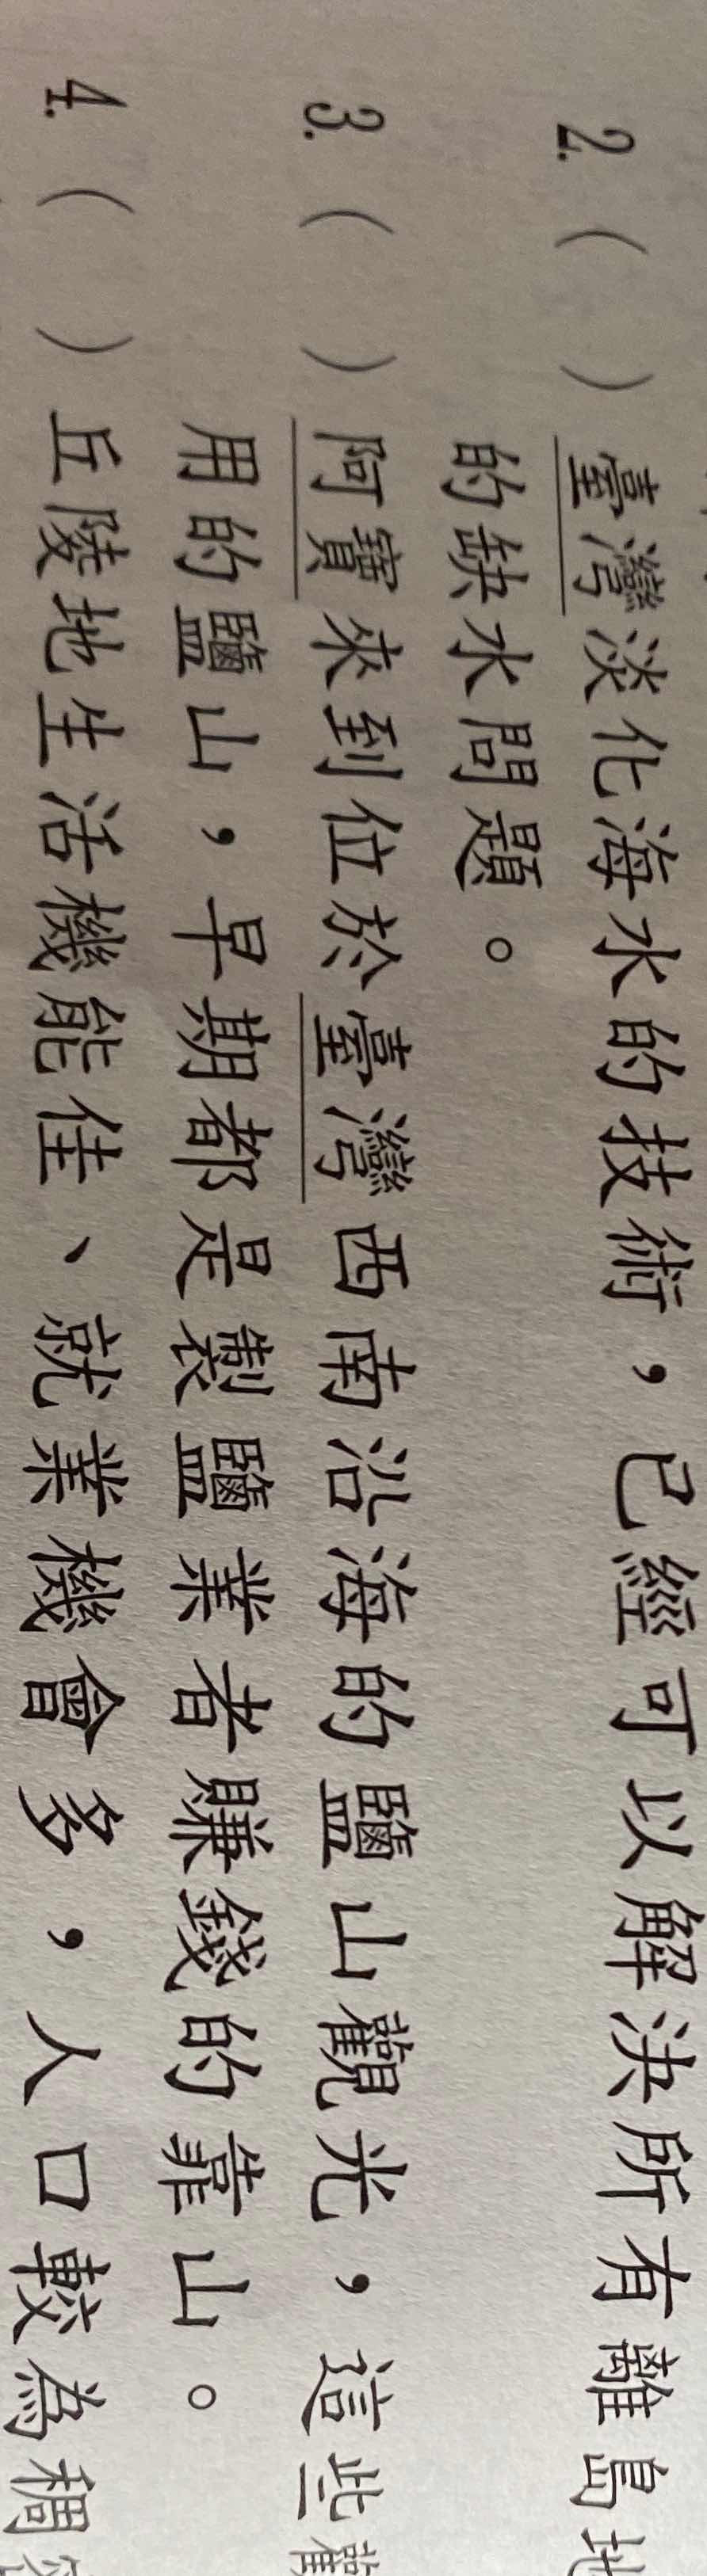 2.（　）臺灣淡化海水的技術，已經可以解決所有離島地
的缺水問題。
3.（　）阿寶來到位於臺灣西南沿海的鹽山觀光，這些觀
用的鹽山，早期都是製鹽業者賺錢的靠山。
4.（　）丘陵地生活機能佳、就業機會多，人口較為稠